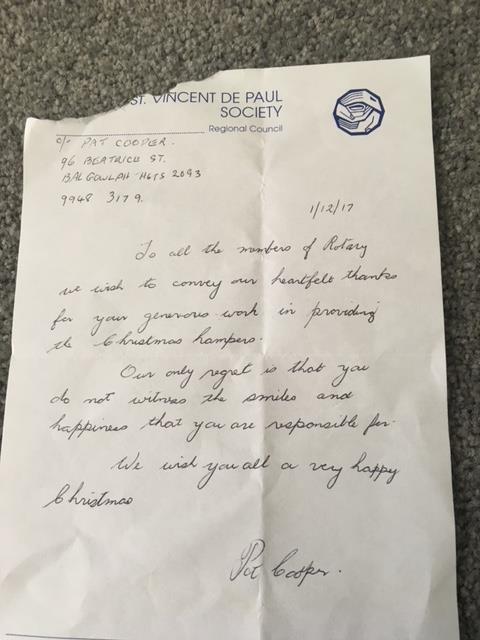 ST. VINCENT DE PAUL
SOCIETY
Regional Council
c/- PAT COOPER.
96 BEATRICE ST.
BALGOWLAH HGTS 2093
9948 3179.
1/12/17
To all the members of Rotary
we wish to convey our heartfelt thanks
for your generous work in providing
the Christmas hampers.
Our only regret is that you
do not witness the smiles and
happiness that you are responsible for.
We wish you all a very happy
Christmas
Pat Cooper.